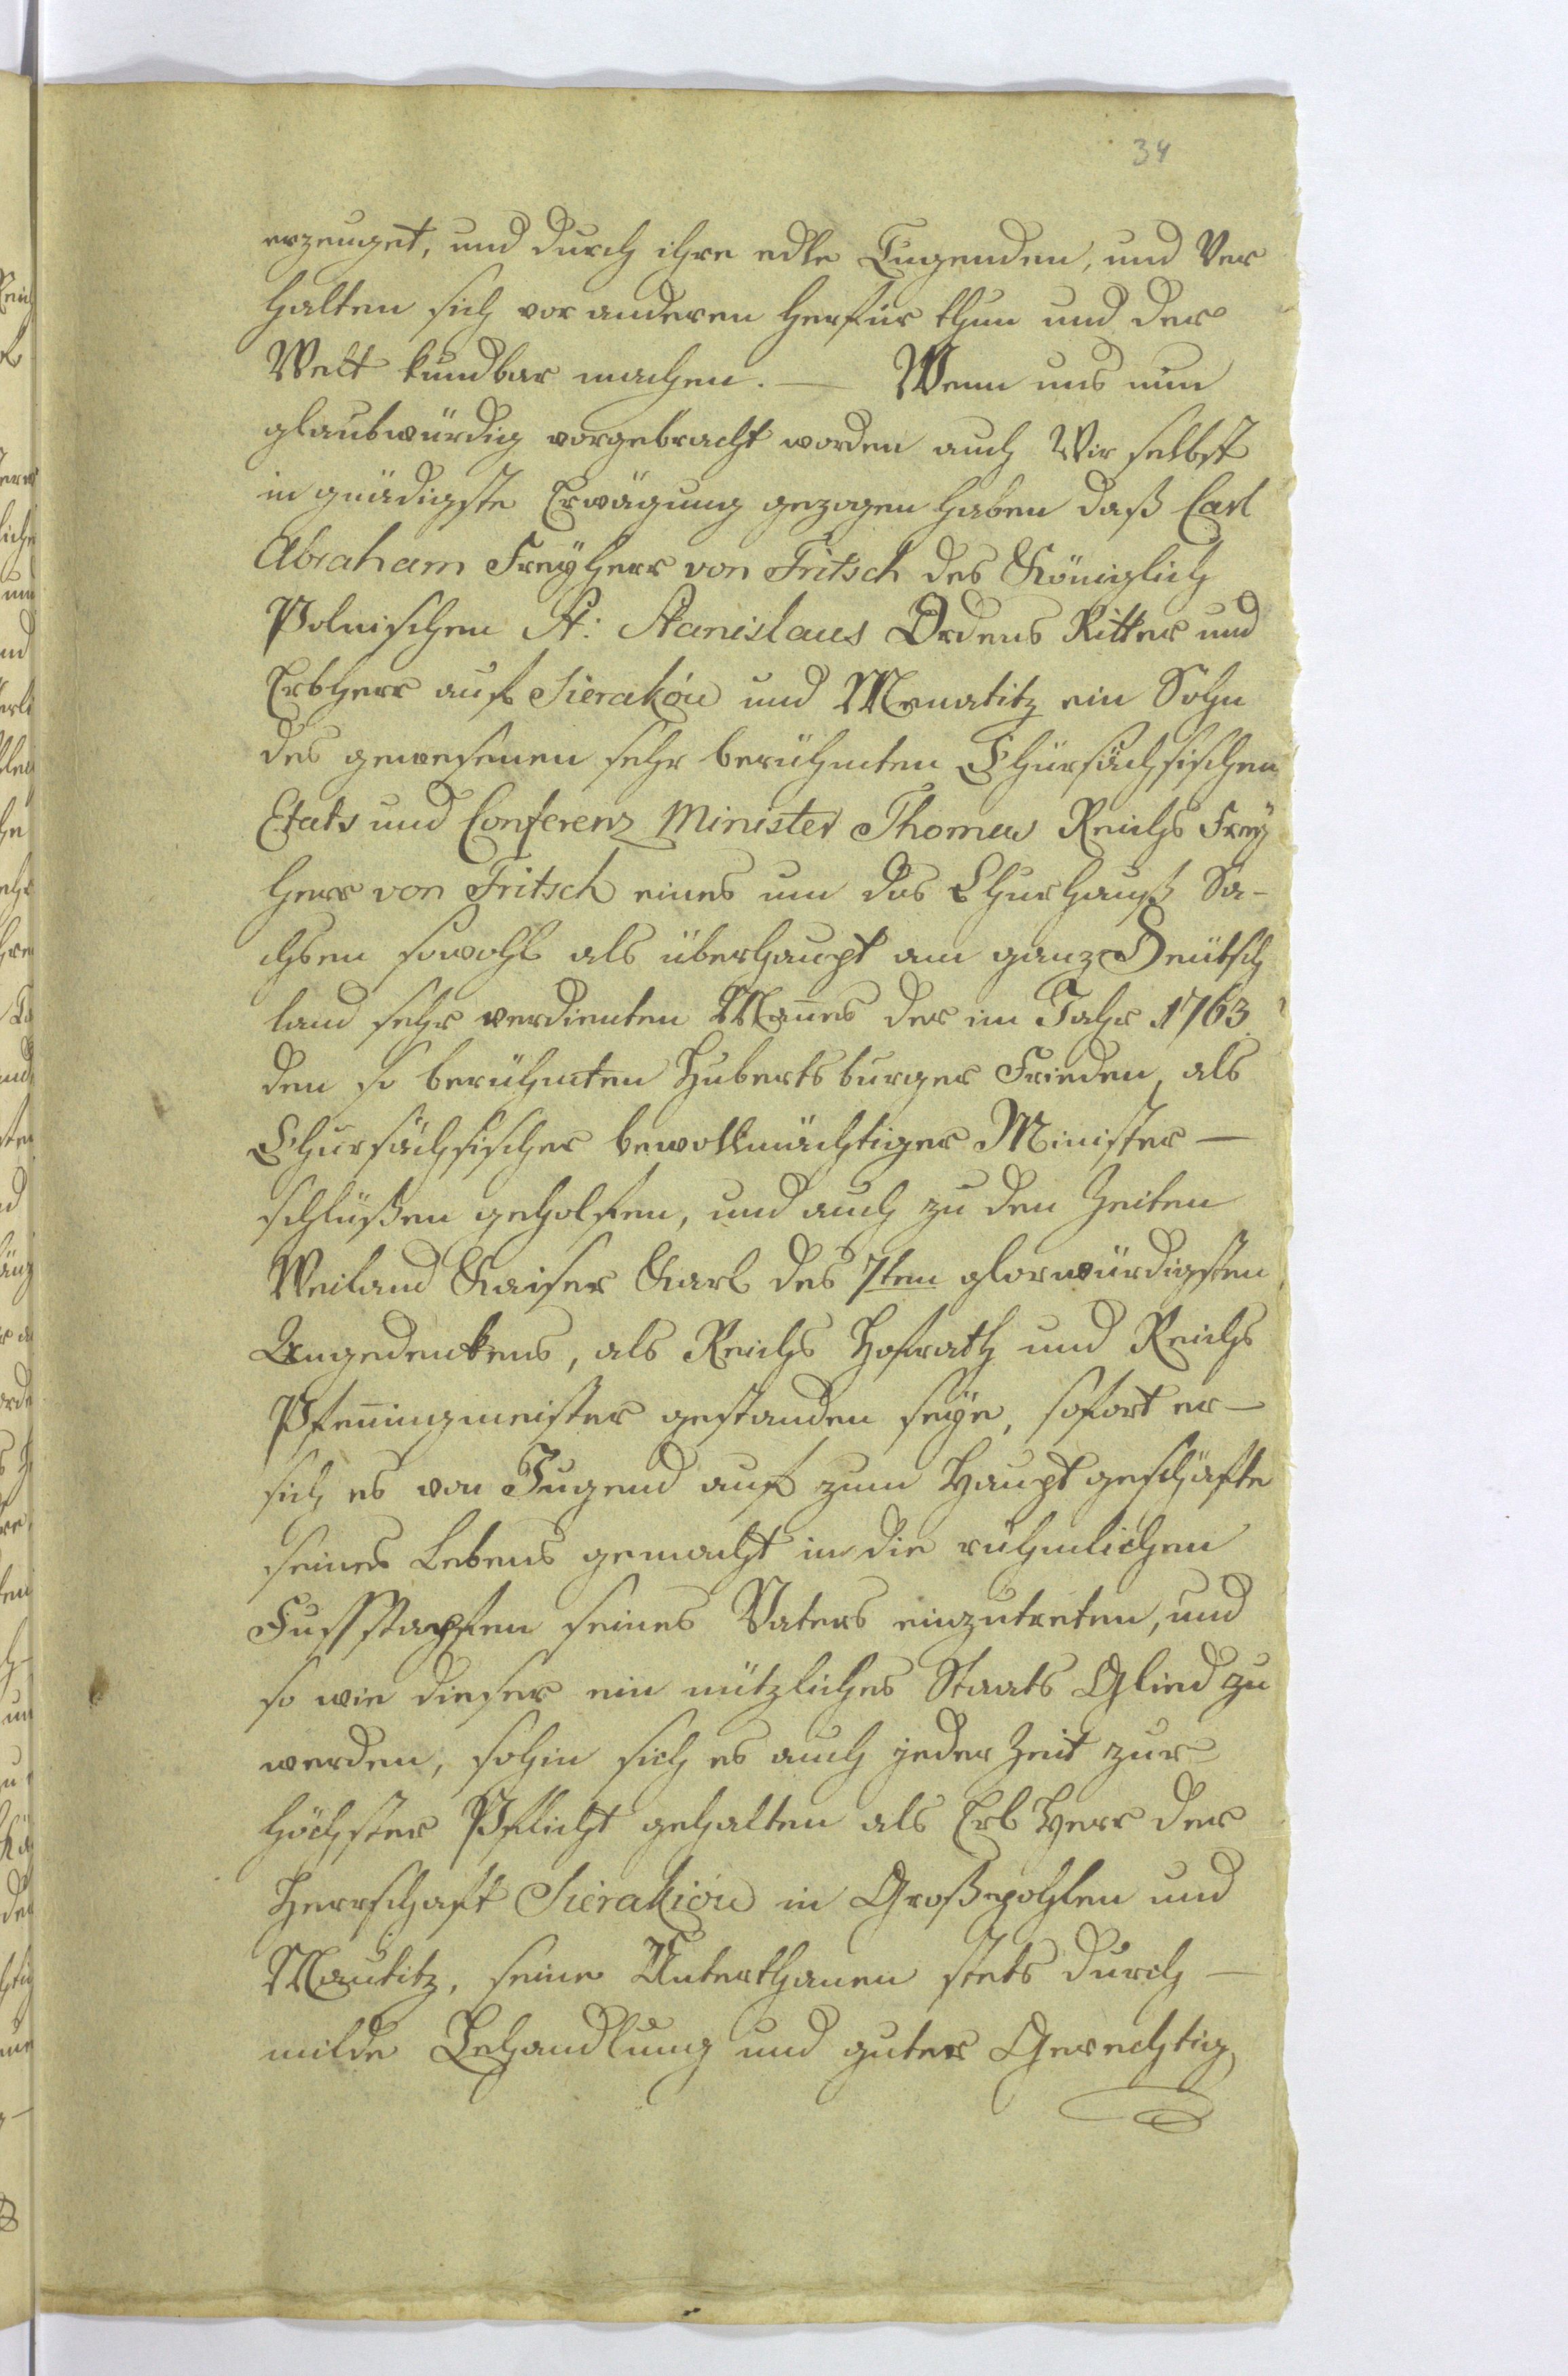 34
erzeuget, und durch ihre edle Tugenden, und Ver
halten sich vor anderen herfür thun und der
Welt kundbar machen. — Wenn uns nun
glaubwürdig vorgebracht worden auch Wir selbst
in gnädigste Erwägung gezogen haben daß Carl
Abraham Freyherr von Fritsch des Königlich
Polnischen St: Stanislaus Ordens Ritter und
Erbherr auf Sierakow und Mematitz ein Sohn
des gewesenen sehr berühmten Churſächsischen
Etats und Conferenz Minister Thomas Reichs Frey
herr von Fritsch eines um das Churhauß Sa-
chsen sowohl als überhaupt am ganz Deütsch
land sehr verdienten Mañes der im Jahr 1763
den so berühmten Hubertsburger Frieden, als
Chursächsischer bevollmächtiger Minister —
schlüßen geholfen, und auch zu den Zeiten
Weiland Kaiser Karl des 7ten glorwürdigsten
Angedenkens, als Reichs Hofrath und Reichs
Pfeñingmeister gestanden seye, sofort er —
sich es von Jugend auf zum Hauptgeschäfte
seines Lebens gemacht in die rühmlichen
Fußstapfen seines Vaters einzutreten, und
so wie dieser ein nützliches Staats Glied zu
werden, sohin sich es auch jeder Zeit zur
höchster Pflicht gehalten als Erb Herr der
Herrschaft Sierakiow in Großpohlen und
Mautitz, seine Unterthanen stets durch —
milde Behandlung und guter Gerechtig